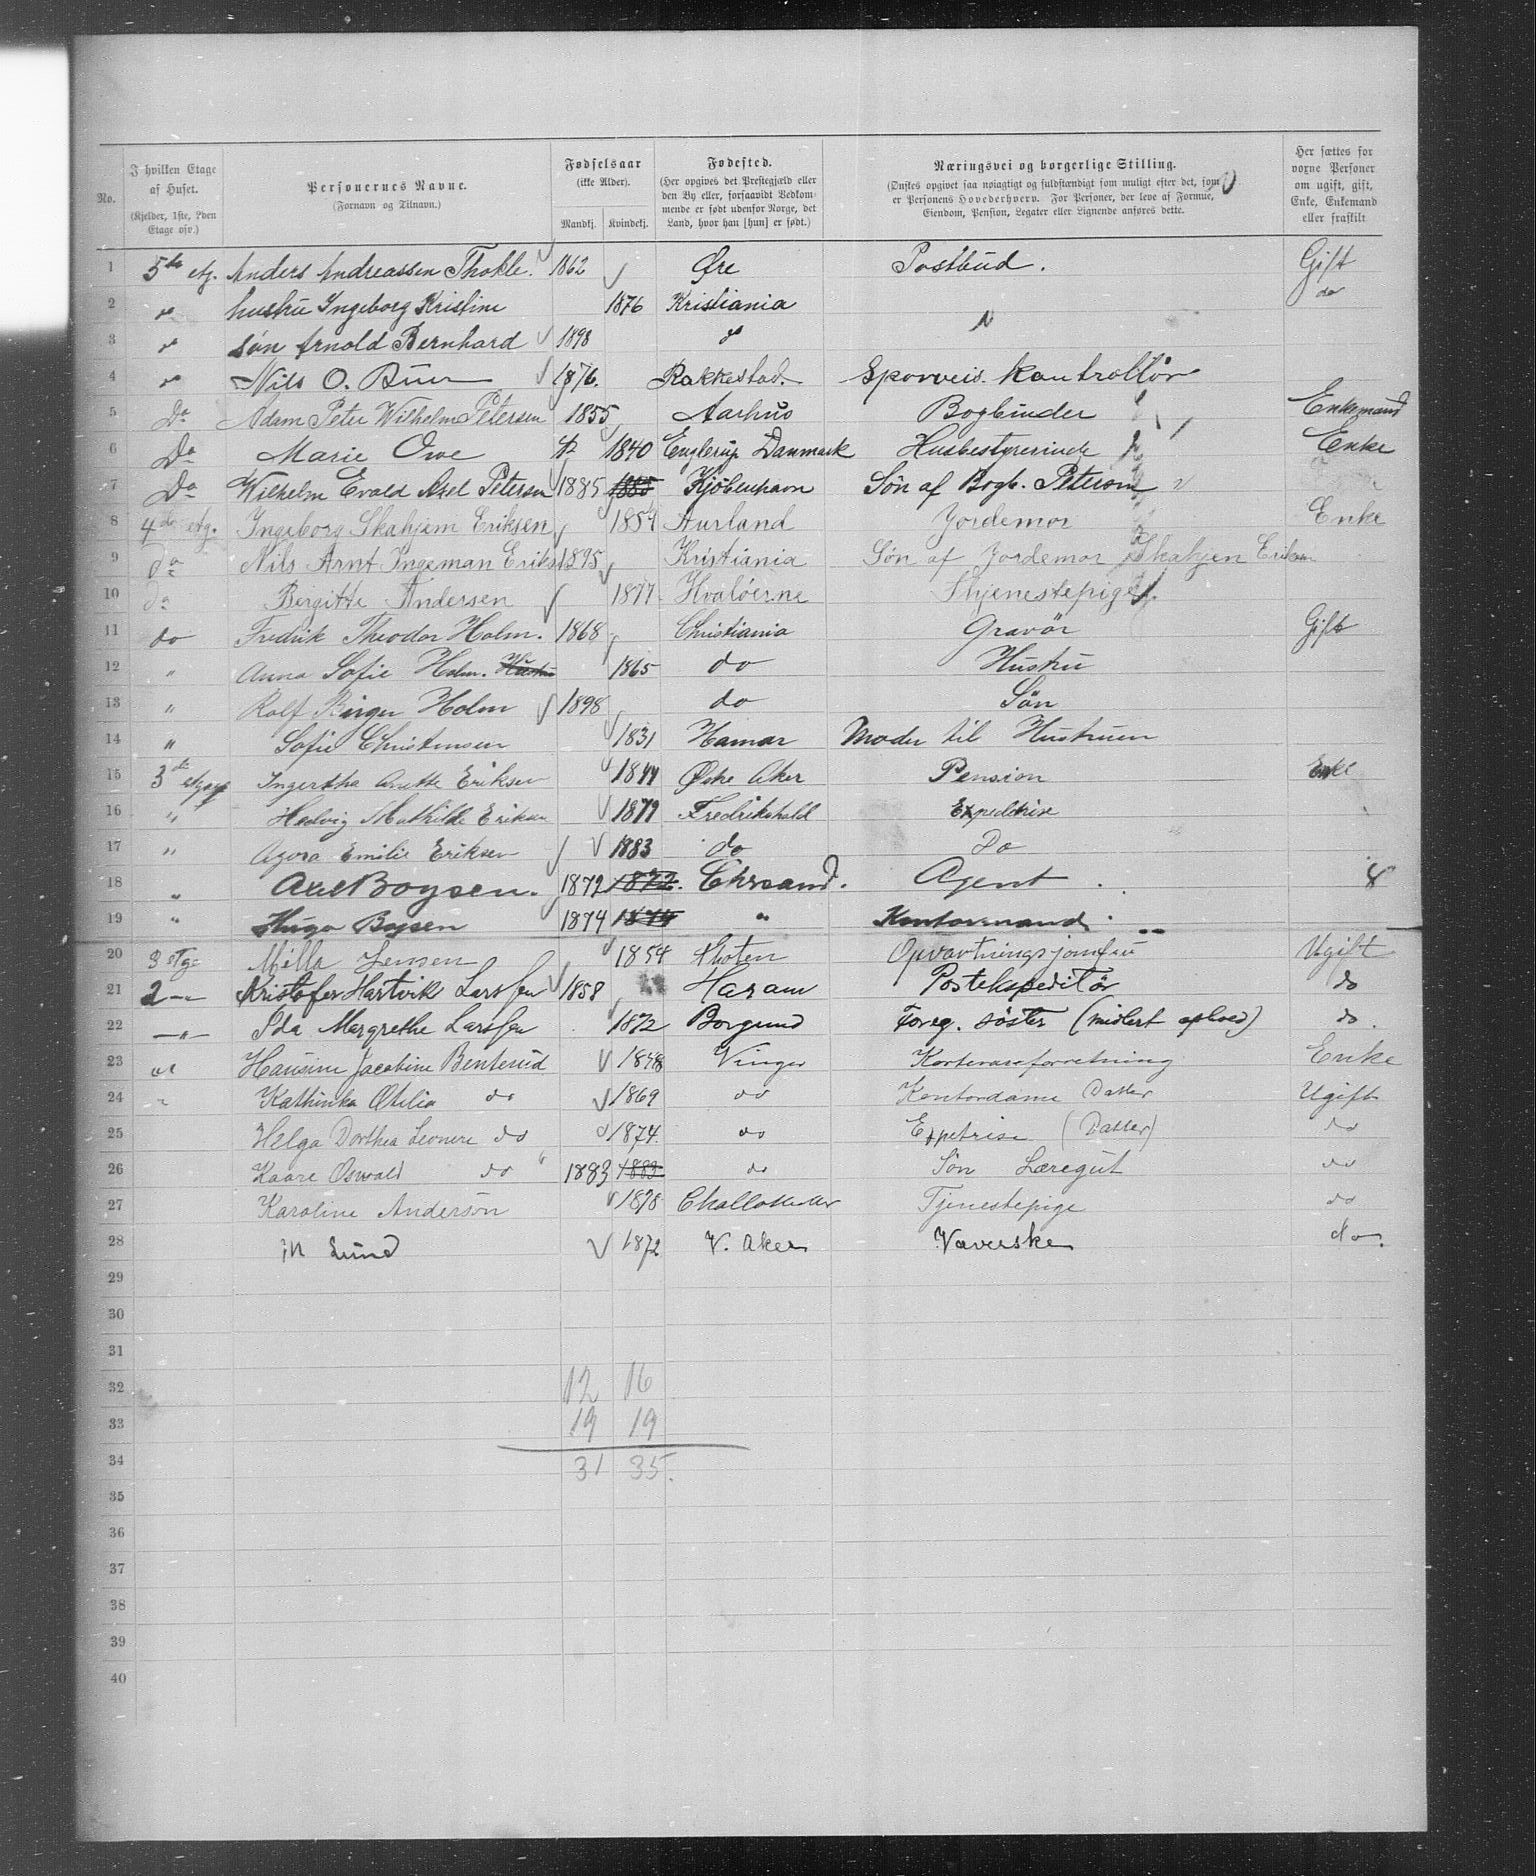 No. | I hvilken Etage af Huset. (Kjelder, 1ste, 2den Etage osv.) | Personernes Navne. (Fornavn og Tilnavn.) | Fødselsaar (ikke Alder). Mandkj. Kvindekj. | Fødested. (Her opgives det Prestegjæld eller den By eller, forsaavidt Vedkommende er født udenfor Norge, det Land, hvor han [hun] er født.) | Næringsvei og borgerlige Stilling. (Ønskes opgivet saa nøiagtigt og fuldstændigt som muligt efter det, som er Personens Hovederhverv. For Personer, der leve af Formue, Eiendom, Pension, Legater eller Lignende anføres dette. | Her sættes for voxne Personer om ugift, gift, Enke, Enkemand eller fraskilt
1 5te etg. Anders Andreassen Thokle. 1862 Øre Postbud. Gift
2 do hustru Ingeborg Kristine 1876 Kristiania do
3 do søn Arnold Bernhard 1898 do
4 do Nils O. 1876. Rakkestad. Sporveis. kontrollør
5 Do Adam Peter Wilhelm Petersen 1855 Aarhus Bogbinder Enkemand
6 Do Marie Owe 1840 Danmark Husbestyrerinde Enke
7 Do Wilhelm Evald Axel Petersen 1885 1885 Kjøbenhavn Søn af Bogb. Petersen
8 4de etg. Ingeborg Skahjem Eriksen 1854 Aurland Jordemor Enke
9 do Nils Arnt Ingeman Eriks 1895 Kristiania Søn af Jordemor Skahjen Eriksen
10 do Bergitte Andersen 1877 Hvaløerne Thjenestepige.
11 do Fredrik Theodor Holm. 1868 Christiania Gravør Gift
12 " Anna Sofie Holm. Hustru 1865 do Hustru
13 " Rolf Birger Holm 1898 do Søn
14 " Sofie Christensen 1831 Hamar Moder til Hustruen
15 3de Anette Eriksen 1844 Østre Aker Pension Enke
16 " Hedvig Mathilde Eriksen 1879 Fredrikshald Expeditrise
17 " Agora Emilie Eriksen 1883 do Do
18 " Axel Boysen. 1872 1872. Chrsand. Agent. 8
19 " Hugo Boysen 1874 1874 " Kontormand
20 3 Etg. Milla Jensen 1854 Thoten Opvartningsjomfru Ugift
21 2 -"- Kristofer Hartvik Larssen 1858 Haram Postekspeditør do
22 -"- Ida Margrethe Larssen 1872 Borgund Foreg. søster (midlert ophold) do.
23 Hansine Jacobine Benterud 1848 Vinger Kortevareforretning Enke
24 " Kathinka Otilia do 1869 do Kontordame Datter Ugift
25 Helga Dorthea Leonore do 1874. do Expetrise (Datter) do
26 Kaare Oswald do 1883 1883 do Søn Læregut do
27 Karoline Anderson 1878 Tjenestepige do
28 M Lund 1872 V. Aker Væverske do.
29
30
31
32 12 16
33 19 19
34 31 35.
35
36
37
38
39
40